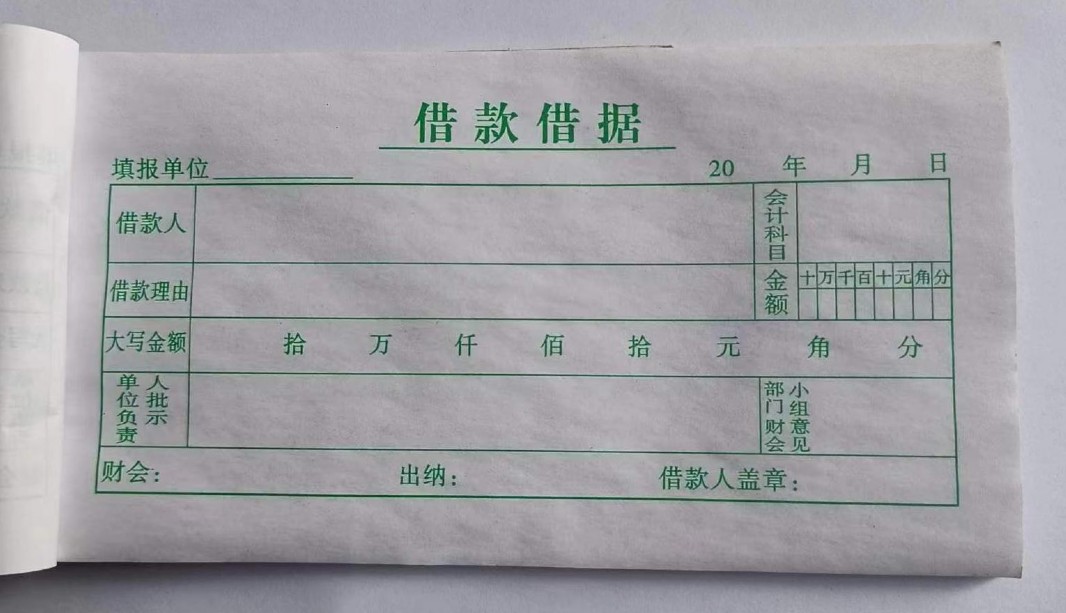 借款借据
填报单位 20 年 月 日
借款人 会计科目
借款理由 金额 十万千百十元角分
大写金额 拾 万 仟 佰 拾 元 角 分
单位负责人批示 部门财会小组意见
财会： 出纳： 借款人盖章：